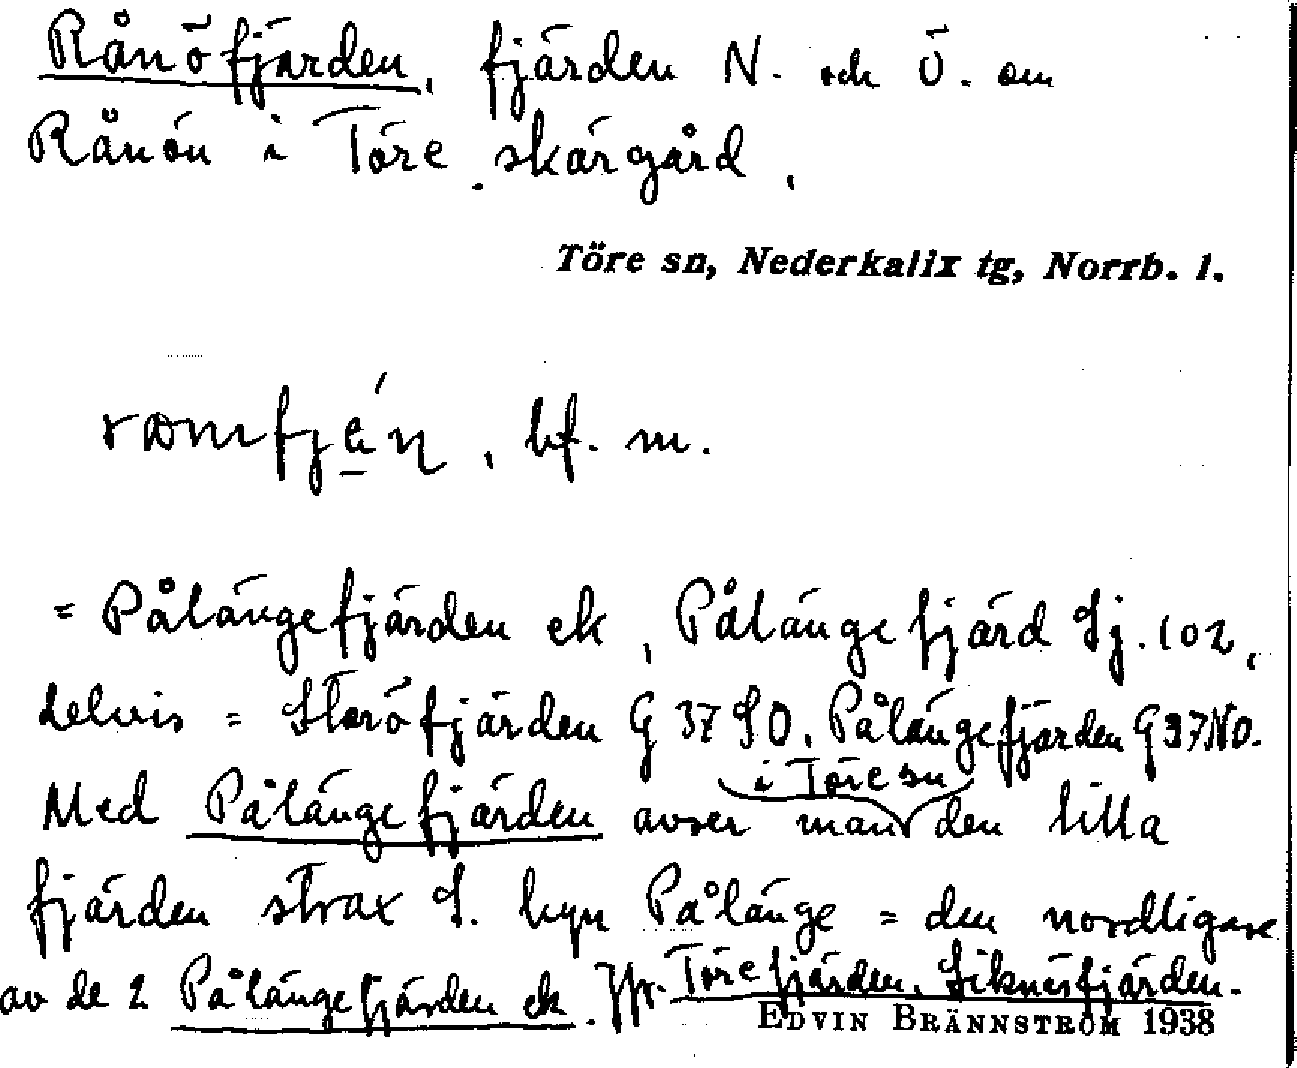 Rånöfjärden, fjärden N. och Ö. om
Rånön i Töre skärgård,
Töre sn, Nederkalix tg, Norrb. l.
bf. m.
= Pålängefjärden ek, Pålängefjärd Sj. 102,
delvis = Storöfjärden G 37 SO, Pålängefjärden G 37 NO.
i Töre sn
Med Pålängefjärden avser man den lilla
fjärden strax S. byn Pålänge = den nordligare
av de 2 Pålängefjärden ek. Jfr. Törefjärden, Siknäsfjärden.
EDVIN BRÄNNSTRÖM 1938